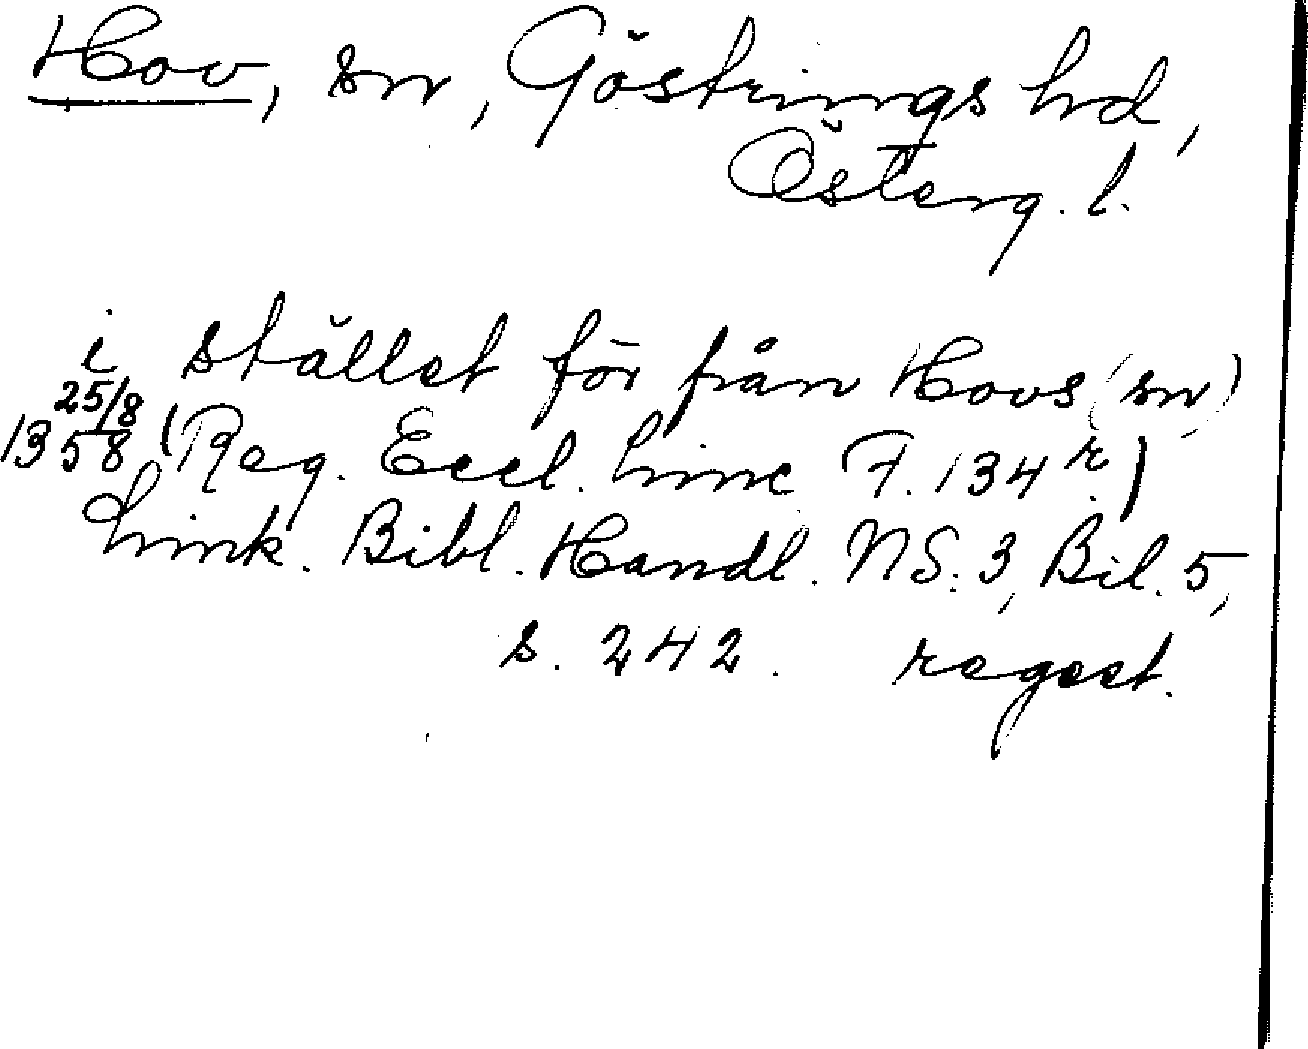 Hov, sn, Göstrings hd,
Österg. l.
i stället för från Hovs (sn)
25/8 1358 (Reg. Eccl. Linc F. 134 r)
Link. Bibl. Handl. NS. 3, Bil. 5,
s. 242. regest.